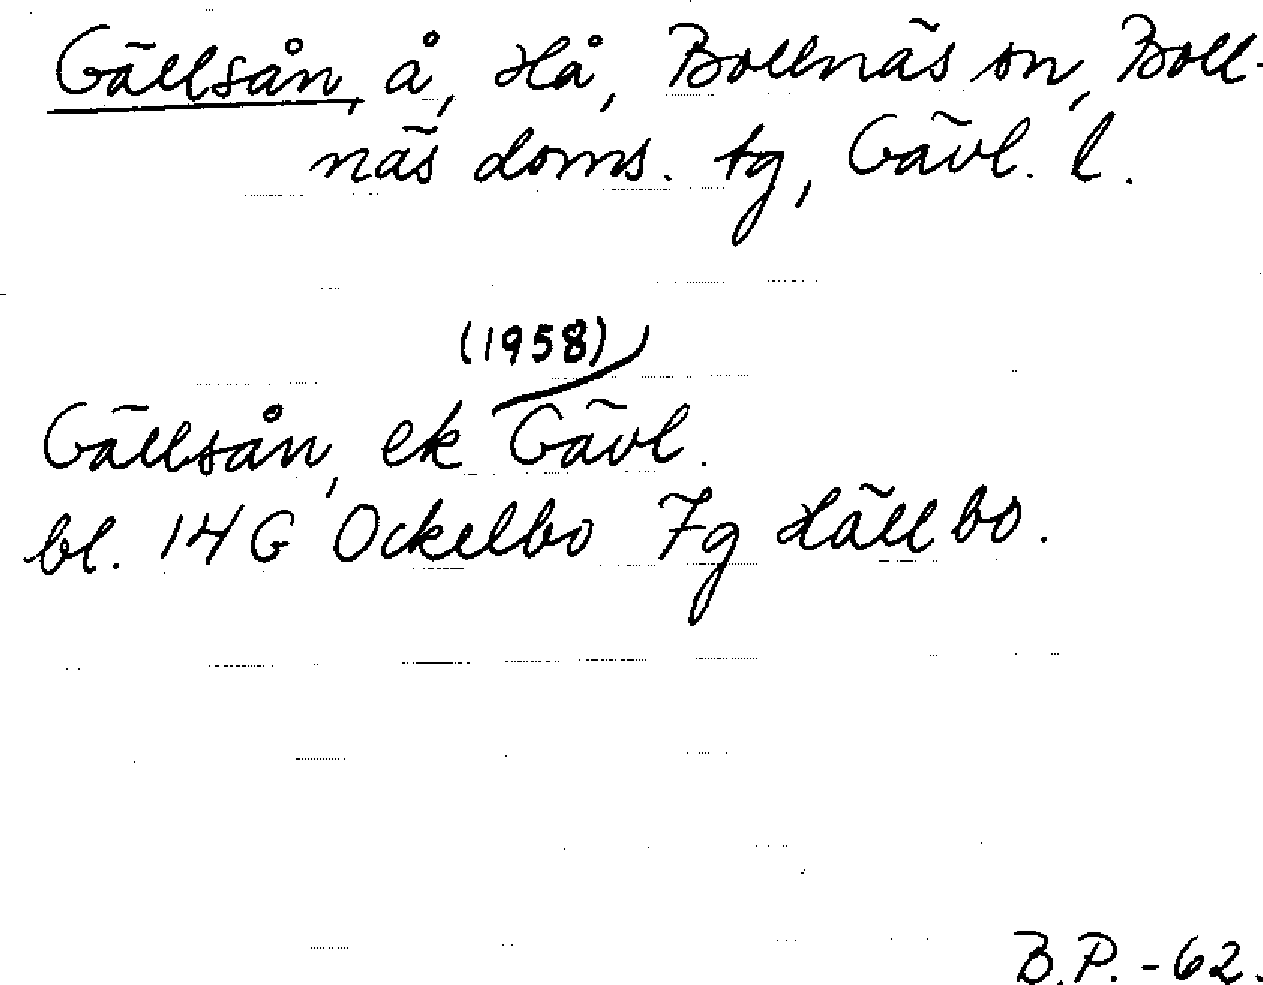 Gällsån, å, Hå, Bollnäs sn, Boll-
näs doms. tg, Gävl. l.
(1958)
Gällsån, ek Gävl.
bl. 14 G Ockelbo 7g Hällbo.
B.P. -62.